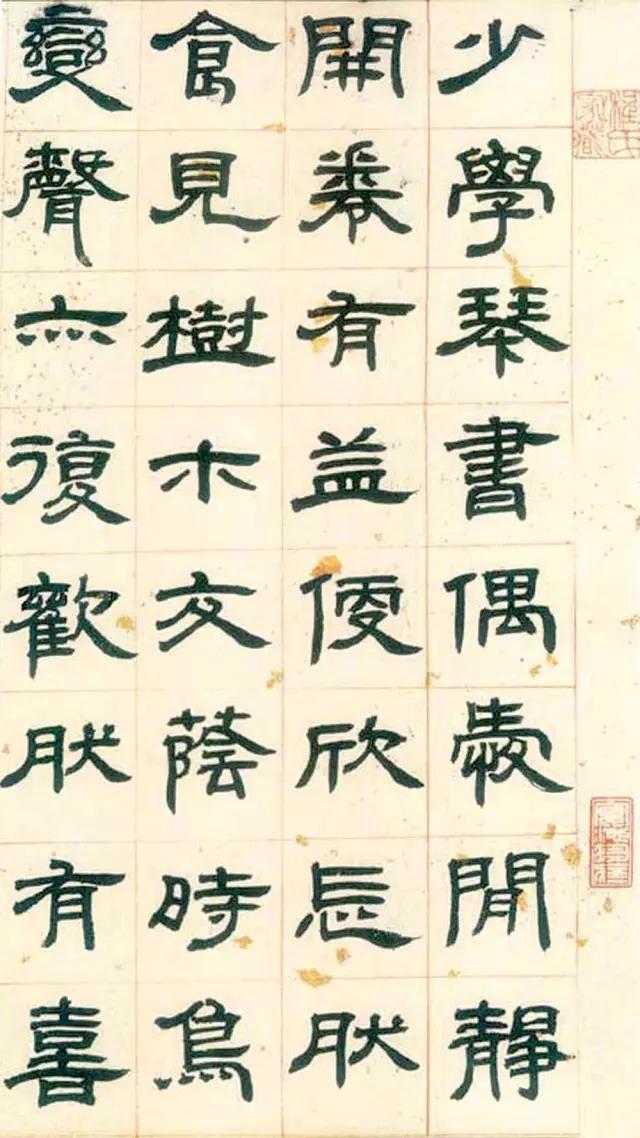 少學琴書偶愛閒靜
開卷有益便欣忘肰
食見樹木交蔭時鳥
變聲亦復歡肰有喜